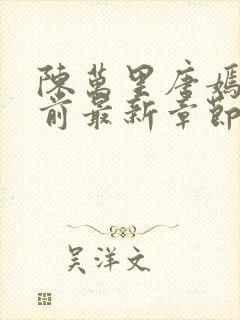 陳萬里唐嫣
前最新章節
吴洋文